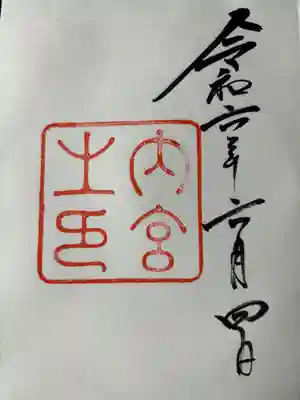 令和六年六月四日
内宮
之印